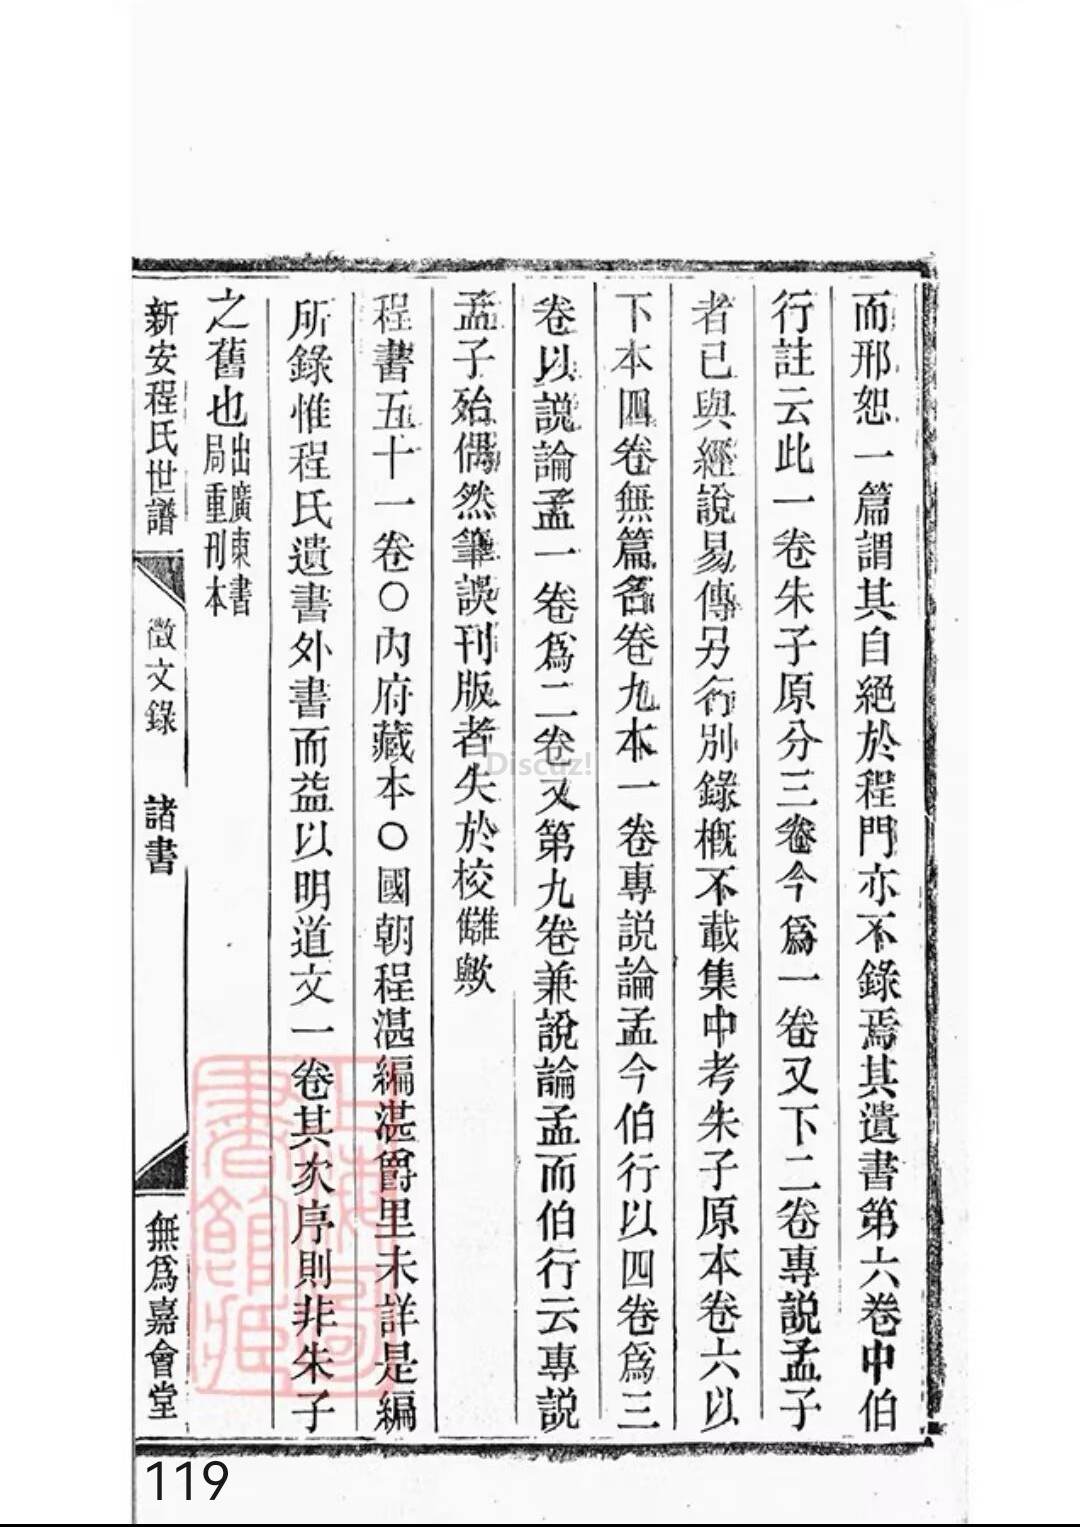 而邢恕一篇謂其自絕於程門亦不錄焉其遺書第六卷中伯
行註云此一卷朱子原分三卷今爲一卷又下二卷專說孟子
者已與經說易傳另行別錄概不載集中考朱子原本卷六以
下本四卷無篇名卷九本一卷專說論孟今伯行以四卷爲三
卷以說論孟一卷爲二卷又第九卷兼說論孟而伯行云專說
孟子殆偶然筆誤刊版者失於校讎歟
程書五十一卷○內府藏本○國朝程湛編湛爵里未詳是編
所錄惟程氏遺書外書而益以明道文一卷其次序則非朱子
之舊也出廣東書
局重刊本
新安程氏世譜 徵文錄 諸書 無爲嘉會堂
上海圖
書館藏
Discuz!
119